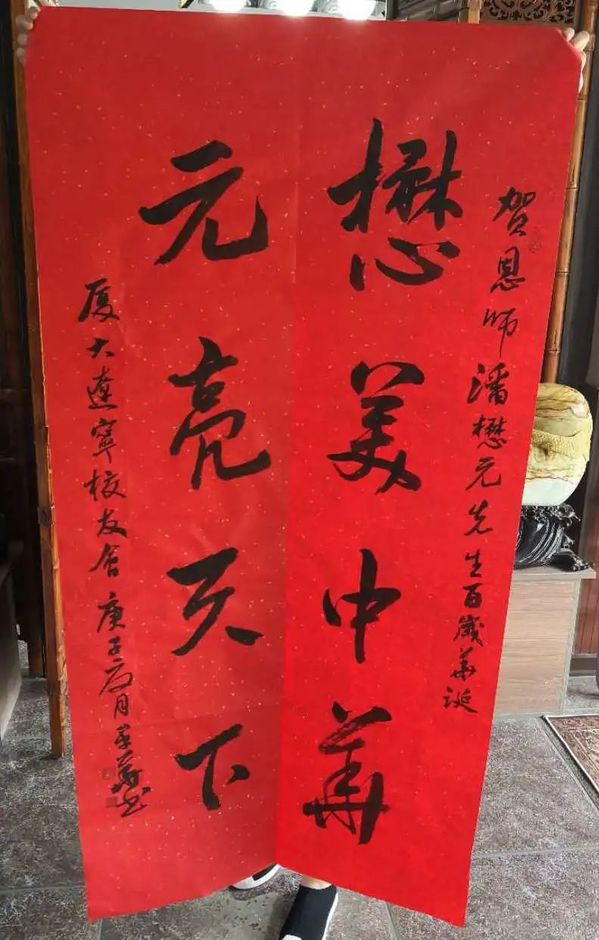 贺恩师潘懋元先生百歲華诞
懋美中華
元亮天下
厦大遼寧校友会 庚子 月 书